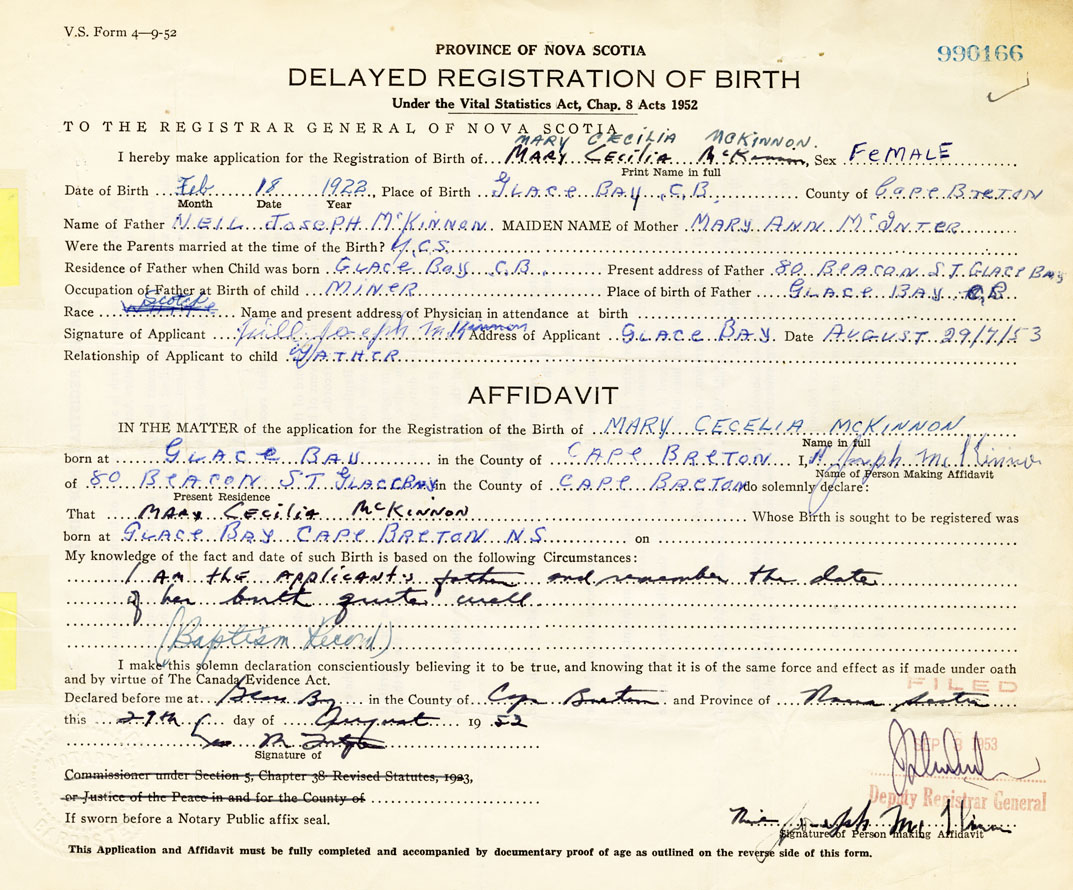 V.S. Form 4—9-52
PROVINCE OF NOVA SCOTIA
990166
DELAYED REGISTRATION OF BIRTH
Under the Vital Statistics Act, Chap. 8 Acts 1952
TO THE REGISTRAR GENERAL OF NOVA SCOTIA
MARY CECILIA MCKINNON.
I hereby make application for the Registration of Birth of Mary Cecilia McKinnon, Sex FeMALE
Print Name in full
Date of Birth Feb 18 1922, Place of Birth GLACE BAY C.B. County of CAPE BRETON
Month Date Year
Name of Father NEIL JOSEPH McKINNON. MAIDEN NAME of Mother MARY ANN
Were the Parents married at the time of the Birth? YES
Residence of Father when Child was born GLACE BAY C.B. Present address of Father 80 BEACON ST. GLACE BAY
Occupation of Father at Birth of child MINER Place of birth of Father GLACE BAY CB
Race Scotch Name and present address of Physician in attendance at birth
Signature of Applicant Joseph McKinnon Address of Applicant GLACE BAY. Date AUGUST 29/7/53
Relationship of Applicant to child FATHER
AFFIDAVIT
IN THE MATTER of the application for the Registration of the Birth of MARY CECELIA MCKINNON
Name in full
born at GLACE BAY in the County of CAPE BRETON I, N Joseph McKinnon
Name of Person Making Affidavit
of 80 BEACON ST GLACE BAY in the County of CAPE BRETON do solemnly declare:
Present Residence
That MARY CECILIA McKINNON Whose Birth is sought to be registered was
born at GLACE BAY CAPE BRETON N.S. on
My knowledge of the fact and date of such Birth is based on the following Circumstances:
I am the applicant's father and remember the date
of her birth quite well.
(Baptism Record)
I make this solemn declaration conscientiously believing it to be true, and knowing that it is of the same force and effect as if made under oath
and by virtue of The Canada Evidence Act.
FILED
Declared before me at Glace Bay in the County of Cape Breton and Province of Nova Scotia
this 29th day of August 19 52
Signature of
SEP 1953
Commissioner under Section 5, Chapter 38 Revised Statutes, 1923,
or Justice of the Peace in and for the County of
Deputy Registrar General
If sworn before a Notary Public affix seal.
Joseph McKinnon
Signature of Person making Affidavit
This Application and Affidavit must be fully completed and accompanied by documentary proof of age as outlined on the reverse side of this form.